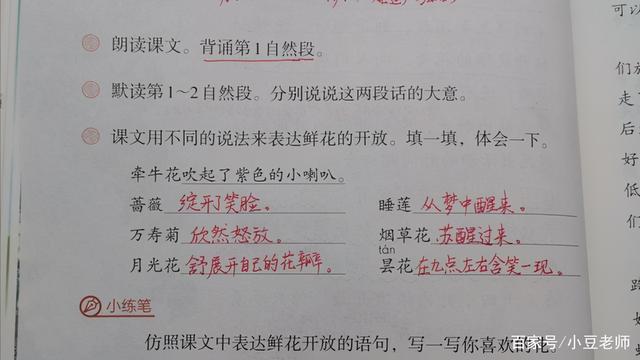 可以
朗读课文。背诵第1自然段。
默读第1~2自然段。分别说说这两段话的大意。
课文用不同的说法来表达鲜花的开放。填一填，体会一下。
牵牛花吹起了紫色的小喇叭。
蔷薇 绽开了笑脸。 睡莲 从梦中醒来。
万寿菊 欣然怒放。 烟草花 苏醒过来。
tán
月光花 舒展开自己的花瓣。 昙花 在九点左右含笑一现。
小练笔
仿照课文中表达鲜花开放的语句，写一写你喜欢的花。
们放
走了
后
好
低
们
路
百家号/小豆老师